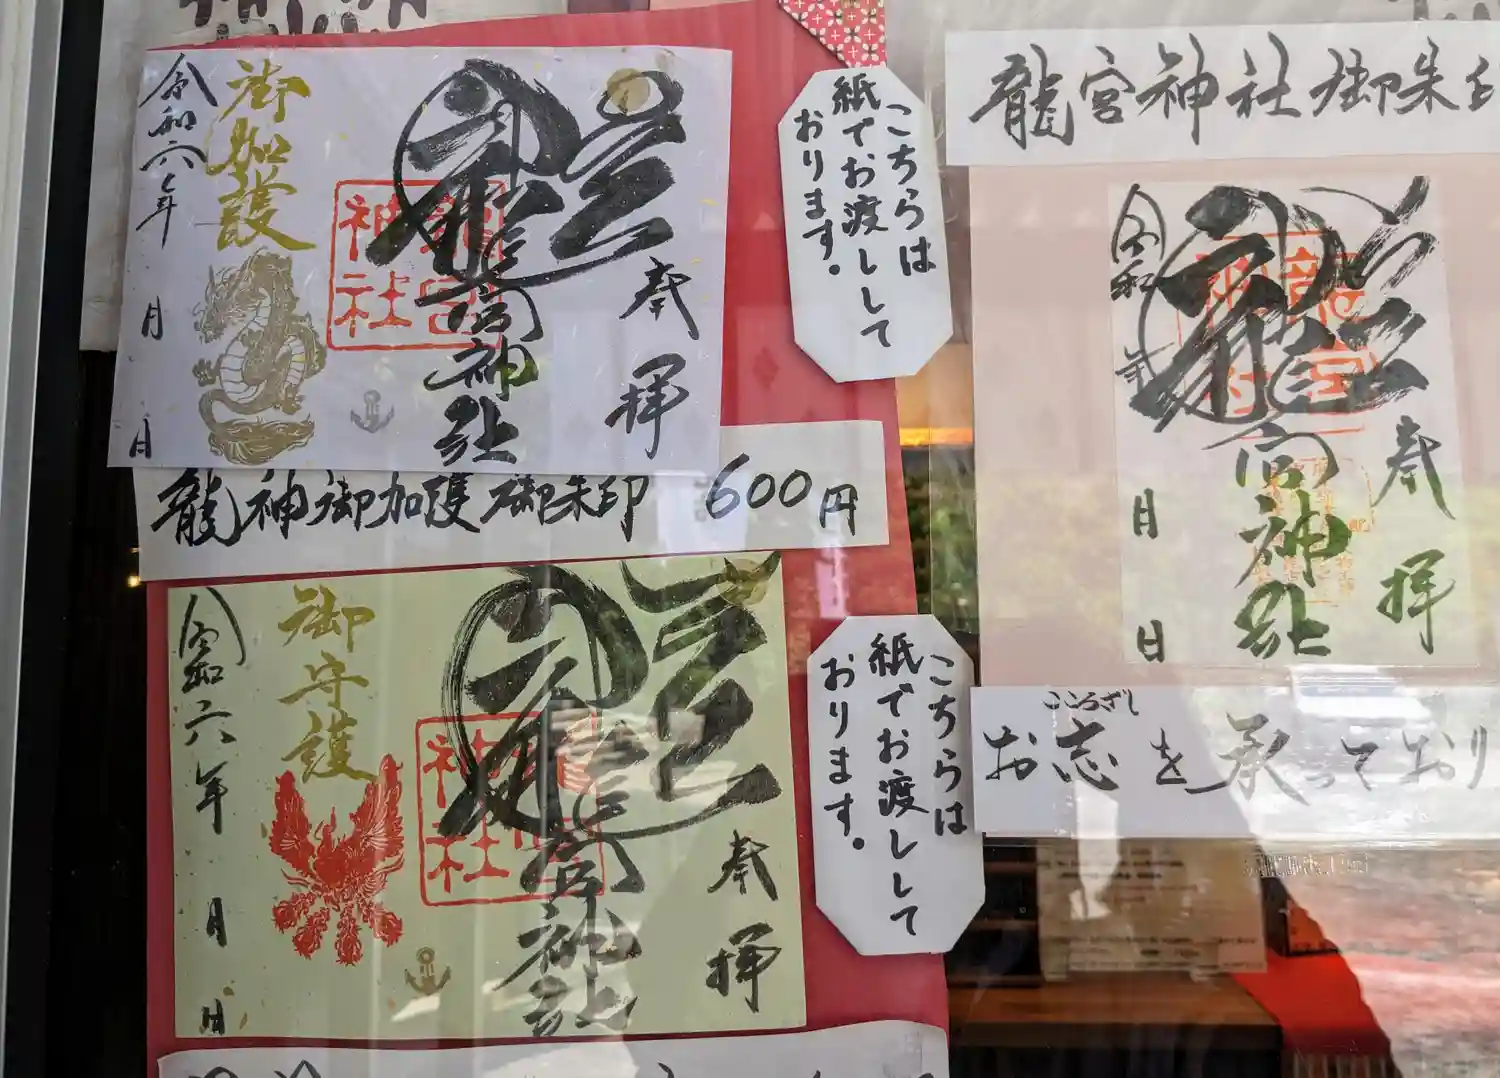 奉拝
龍宮神社
神社
御加護
令和六年
月
日
龍神御加護御朱印 600円
こちらは
紙でお渡しして
おります。
奉拝
龍宮神社
神社
御守護
令和六年
月
日
こちらは
紙でお渡しして
おります。
龍宮神社御朱印
奉拝
龍宮神社
令和
年
月
日
こころざし
お志を承っており